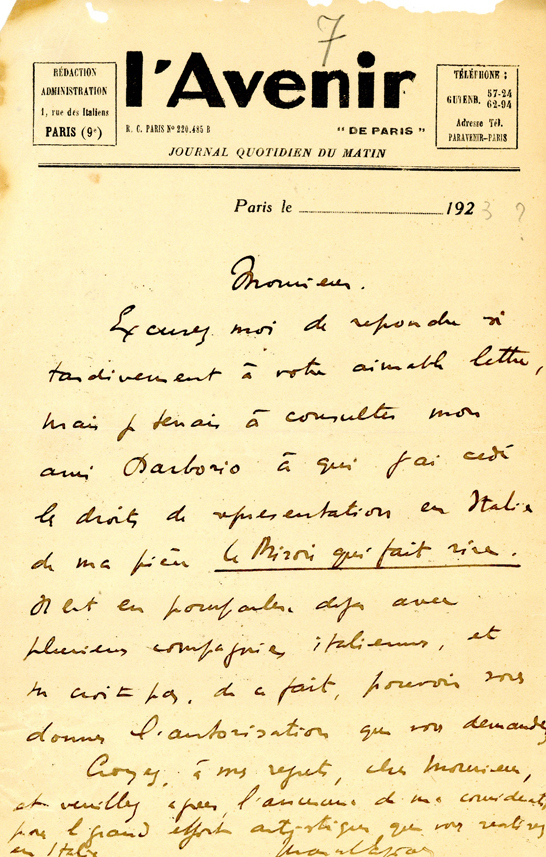 7
RÉDACTION
ADMINISTRATION
1, rue des Italiens
PARIS (9e)
l'Avenir
R. C. PARIS No 220.485 B
"DE PARIS"
JOURNAL QUOTIDIEN DU MATIN
TÉLÉPHONE :
GUTENB. 57-24
62-94
Adresse Tél.
PARAVENIR-PARIS
Paris le 1923 ?
Monsieur.
Excusez moi de repondre si
tardivement à votre aimable lettre,
mais je tenais à consulter mon
ami Barborio à qui j'ai cédé
le droits de representation en Italie
de ma pièce le Miroir qui fait rire.
Il est en pourparlers deja avec
plusieurs compagnies italiennes, et
ne croit pas, de ce fait, pouvoir vous
donner l'autorisation que vous demandez
Croyez, à mes regrets, cher Monsieur,
et veuillez agréer, l'assurance de ma
pour le grand effort artistique que vous realisez
en Italie